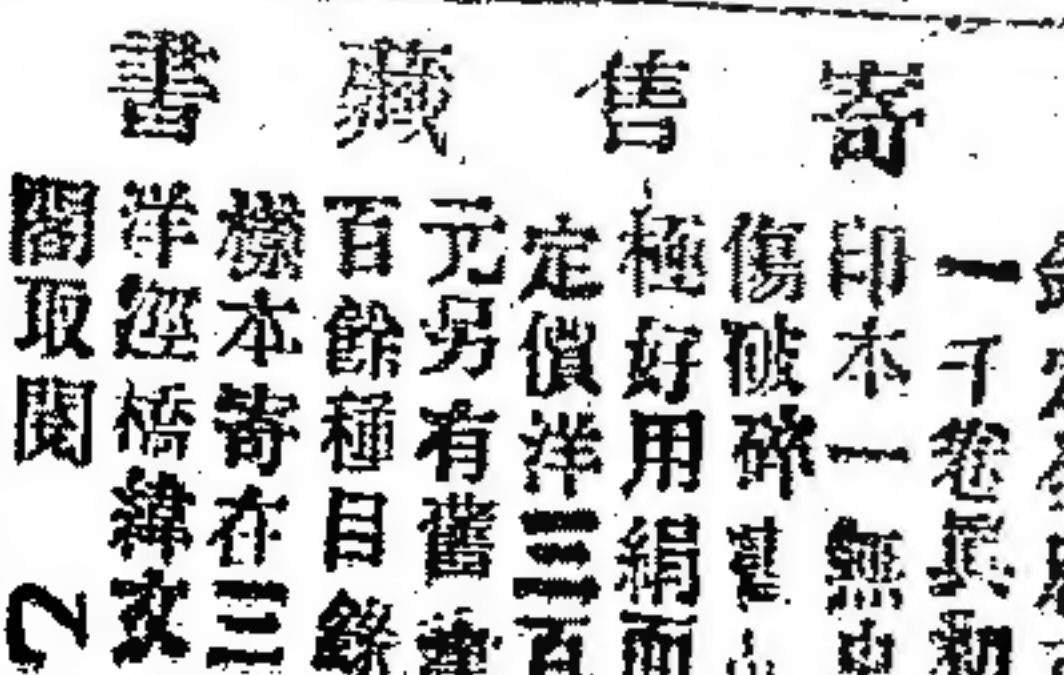 寄售藏書
一千卷兵初
印本一無虫
傷破碎
極好用絹面
定價洋三百
元另有舊書
百餘種目錄
樣本寄在三
洋涇橋緯文
閣取閱